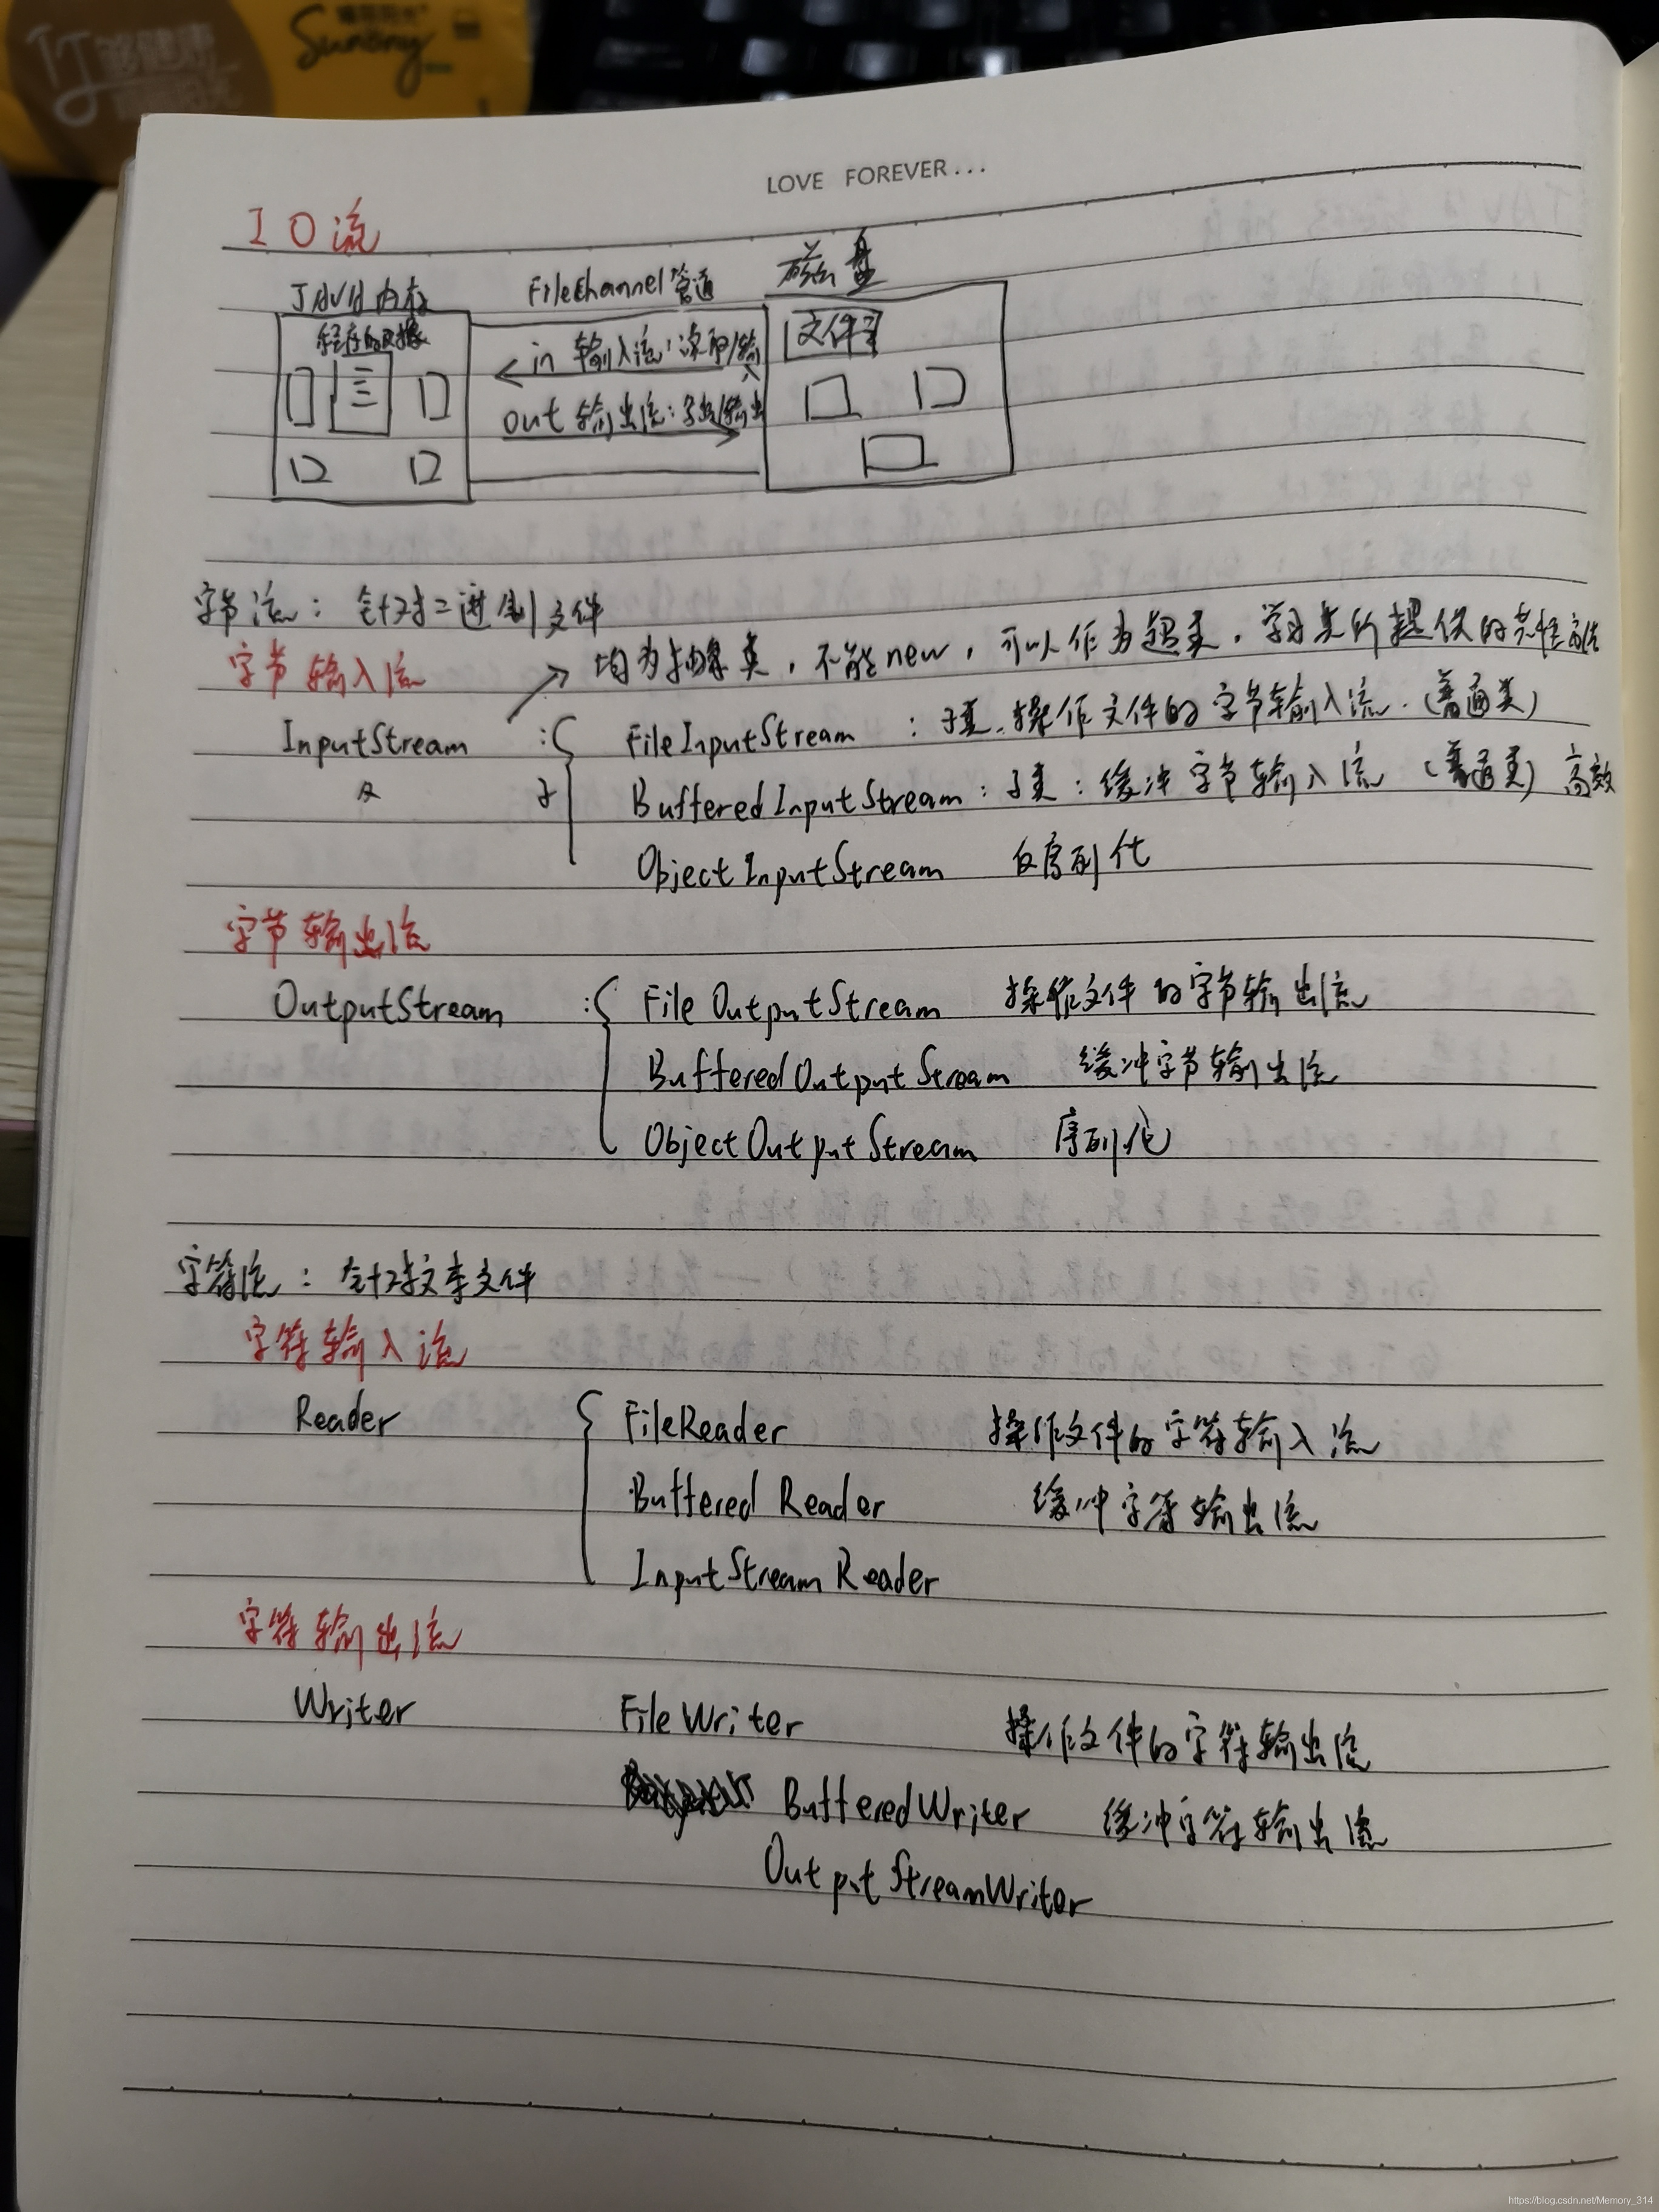 Sunony
LOVE FOREVER...
IO流
JAVA内存 FileChannel管道 磁盘
in 输入流:读取/输入
文件
out 输出流: /输出
字节流:针对二进制文件
字节输入流
均为抽象类,不能new,可以作为超类,学习其所提供的共性方法
InputStream : FileInputStream :子类,操作文件的字节输入流.(普通类)
父 子 BufferedInputStream:子类:缓冲字节输入流 (普通类)高效
ObjectInputStream 反序列化
字节输出流
OutputStream : FileOutputStream 操作文件的字节输出流
BufferedOutputStream 缓冲字节输出流
ObjectOutputStream 序列化
字符流:针对文本文件
字符输入流
Reader FileReader 操作文件的字符输入流
Buffered Reader 缓冲字符输出流
InputStreamReader
字符输出流
Writer FileWriter 操作文件的字符输出流
BufferedWriter 缓冲字符输出流
OutputStreamWriter
https://blog.csdn.net/Memory_314